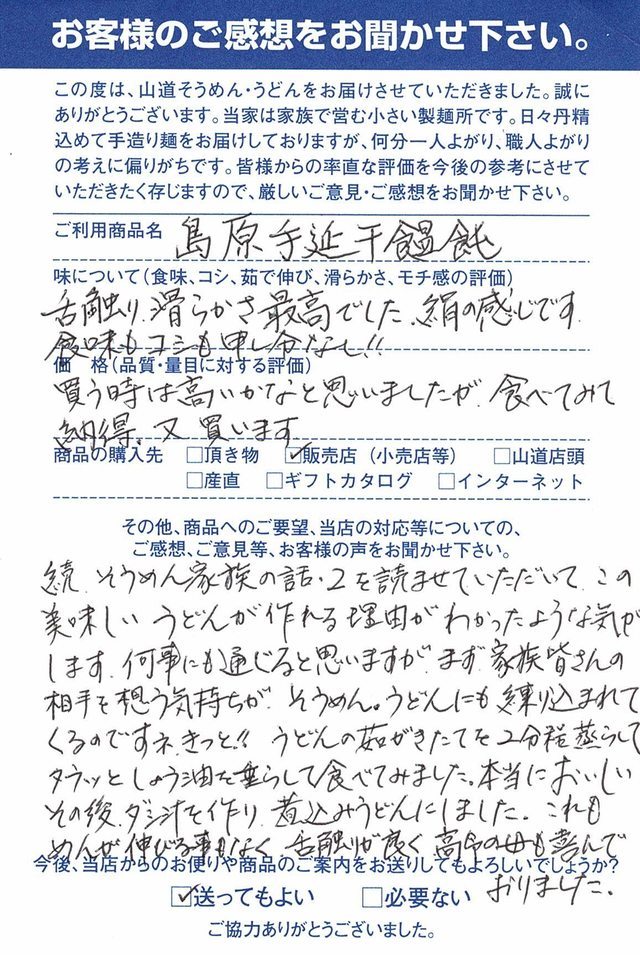 お客様のご感想をお聞かせ下さい。
この度は、山道そうめん・うどんをお届けさせていただきました。誠に
ありがとうございます。当家は家族で営む小さい製麺所です。日々丹精
込めて手造り麺をお届けしておりますが、何分一人よがり、職人よがり
の考えに偏りがちです。皆様からの率直な評価を今後の参考にさせて
いただきたく存じますので、厳しいご意見・ご感想をお聞かせ下さい。
ご利用商品名 島原手延干饂飩
味について(食味、コシ、茹で伸び、滑らかさ、モチ感の評価)
舌触り、滑らかさ最高でした。絹の感じです。
食味もコシも申し分なし!!
価 格(品質・量目に対する評価)
買う時は高いかなと思いましたが、食べてみて
納得。又買います
商品の購入先 □頂き物 ☑販売店(小売店等) □山道店頭
□産直 □ギフトカタログ □インターネット
その他、商品へのご要望、当店の対応等についての、
ご感想、ご意見等、お客様の声をお聞かせ下さい。
続、そうめん家族の話・2を読ませていただいて、この
美味しいうどんが作れる理由がわかったような気が
します。何事にも通じると思いますが、まず家族皆さんの
相手を想う気持ちが、そうめん。うどんにも練り込まれて
くるのですネ、きっと!! うどんの茹がきたてを2分程蒸らして
タラッとしょう油を垂らして食べてみました。本当においしい
その後、ダシ汁を作り、煮込みうどんにしました。これも
めんが伸びる事もなく、舌触りが良く、高令の母も喜んで
おりました。
今後、当店からのお便りや商品のご案内をお送りしてもよろしいでしょうか?
☑送ってもよい □必要ない
ご協力ありがとうございました。